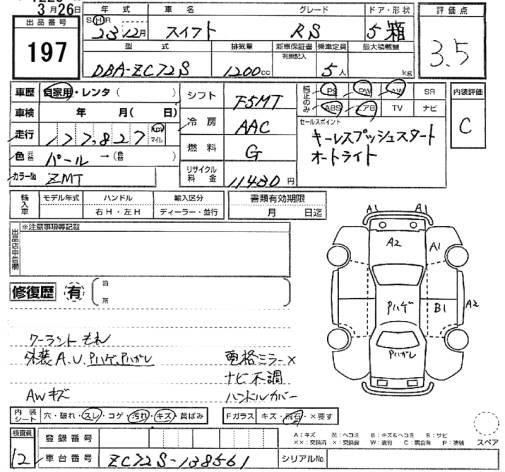 3月26日
出品番号 年式 車名 グレード ドア・形状 評価点
197
S H R 23年12月 スイフト RS 5 箱 3.5
型式 排気量 車歴 乗車定員 最大積載量
DBA-ZC72S 1200cc 5人 kg
車歴 自家用・レンタ( )
車検 年 月( 日)
走行 177,827 km マイル
色 パール→( )
カラーNo ZMT
シフト F5MT
冷房 AAC
燃料 G
リサイクル料金 11430円
純正のみ PS PW AW SR
ABS エアB TV ナビ
内装評価
C
セールスポイント
キーレスプッシュスタート
オートライト
輸入車 モデル年式 ハンドル 輸入区分 書類有効期限
右H・左H ディーラー・並行 月 日迄
※注意事項等記載
修復歴 有
箇所
クーラントもれ
外装A.U.Pハゲ、Pハガレ
AWキズ
電格ミラー×
ナビ不調
ハンドルカバー
A1 A1
A2 A1
Pハゲ B1 A2
Pハガレ
内装シート 穴・破れ・スレ・コゲ・汚れ・キズ・黄ばみ
Fガラス キズ・飛石・×要す
スペア
検査員 登録番号
12 車台番号 ZC72S-138561 シリアルNo.